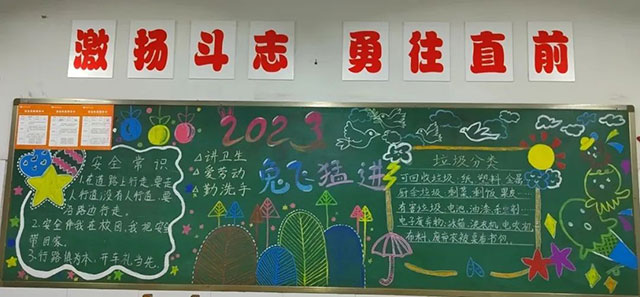 激扬斗志 勇往直前
2023
兔飞猛进
安全常识
1.在道路上行走,要走
人行道,没有人行道,要
沿路边行走。
2.安全伴我在校园,我把安全
带回家。
3.行路德为本,开车礼当先。
讲卫生
爱劳动
勤洗手
垃圾分类
可回收垃圾:纸,塑料,金属
厨余垃圾:剩菜,剩饭,果皮
有害垃圾:电池,油漆,
电子废弃物:冰箱,洗衣机,电吹风
布料,废旧衣被,